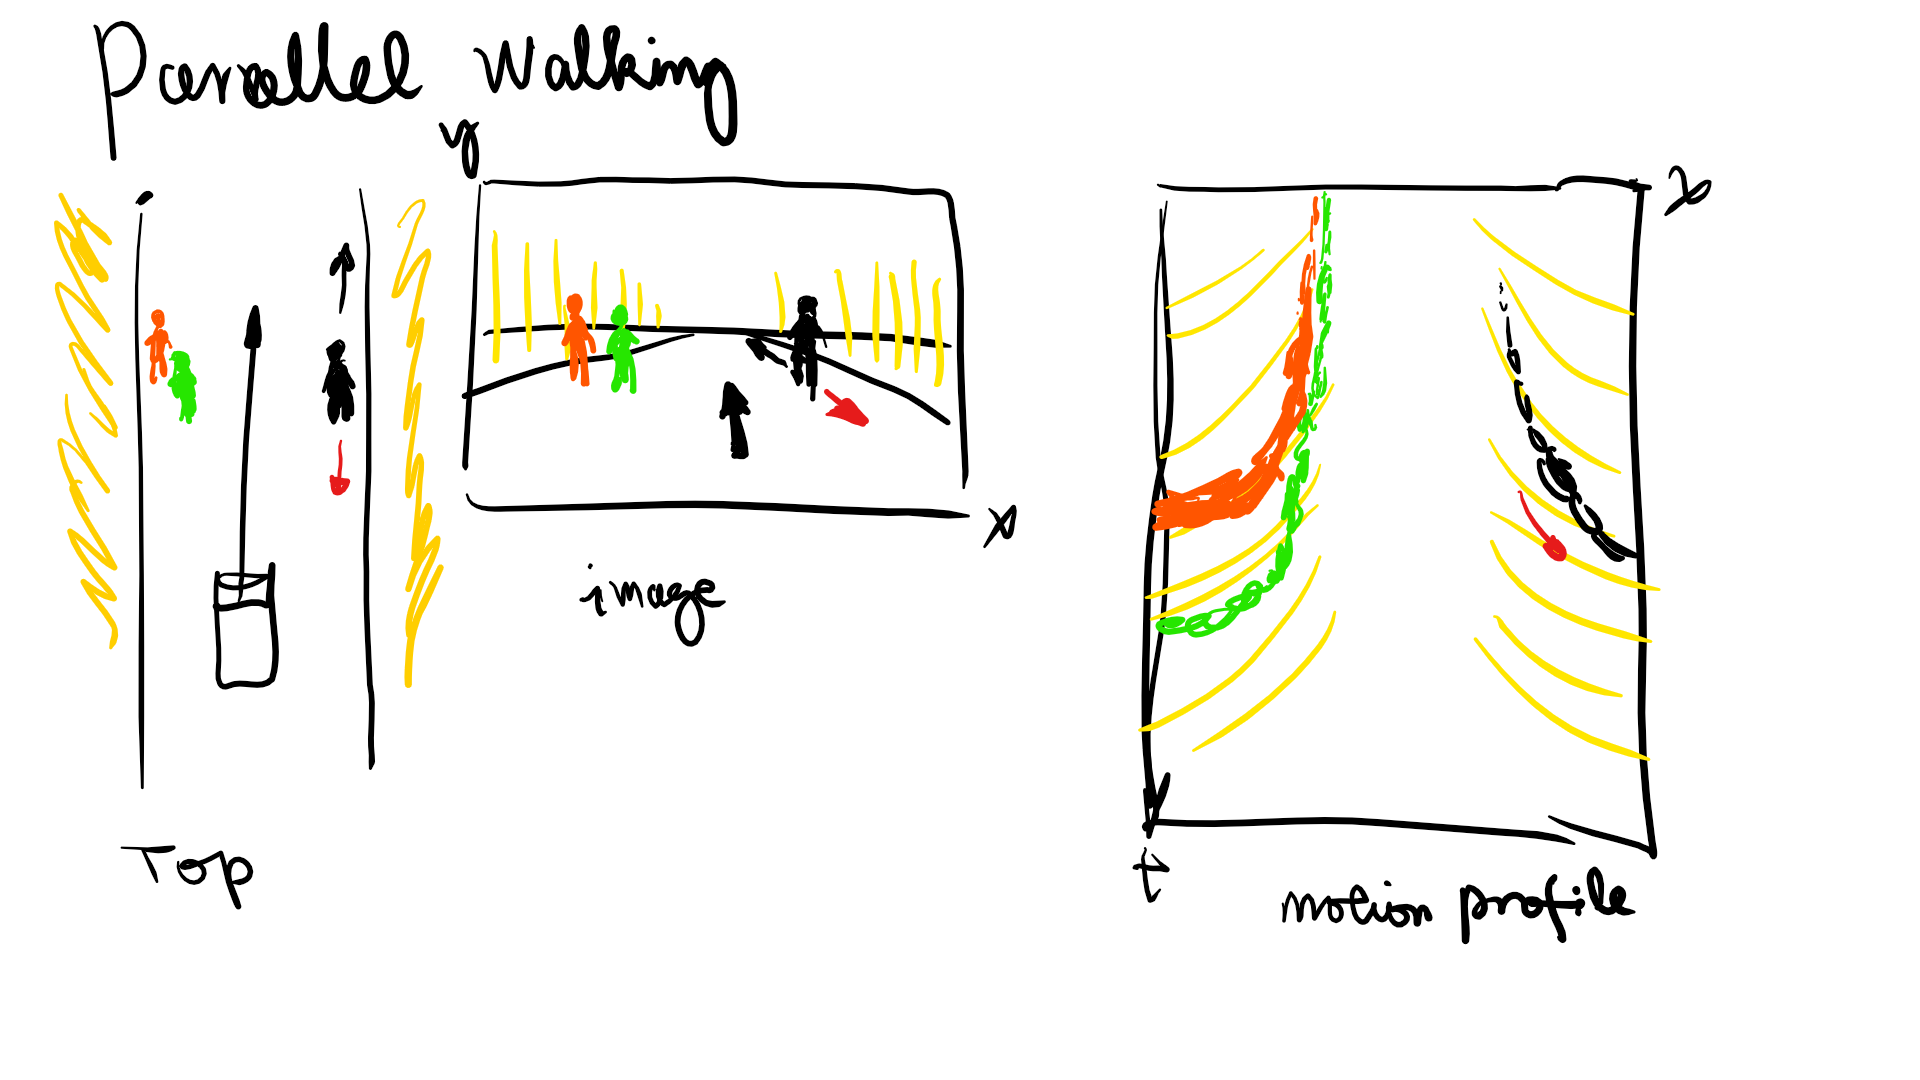 Parallel Walking
y
x
image
Top
x
t
motion profile